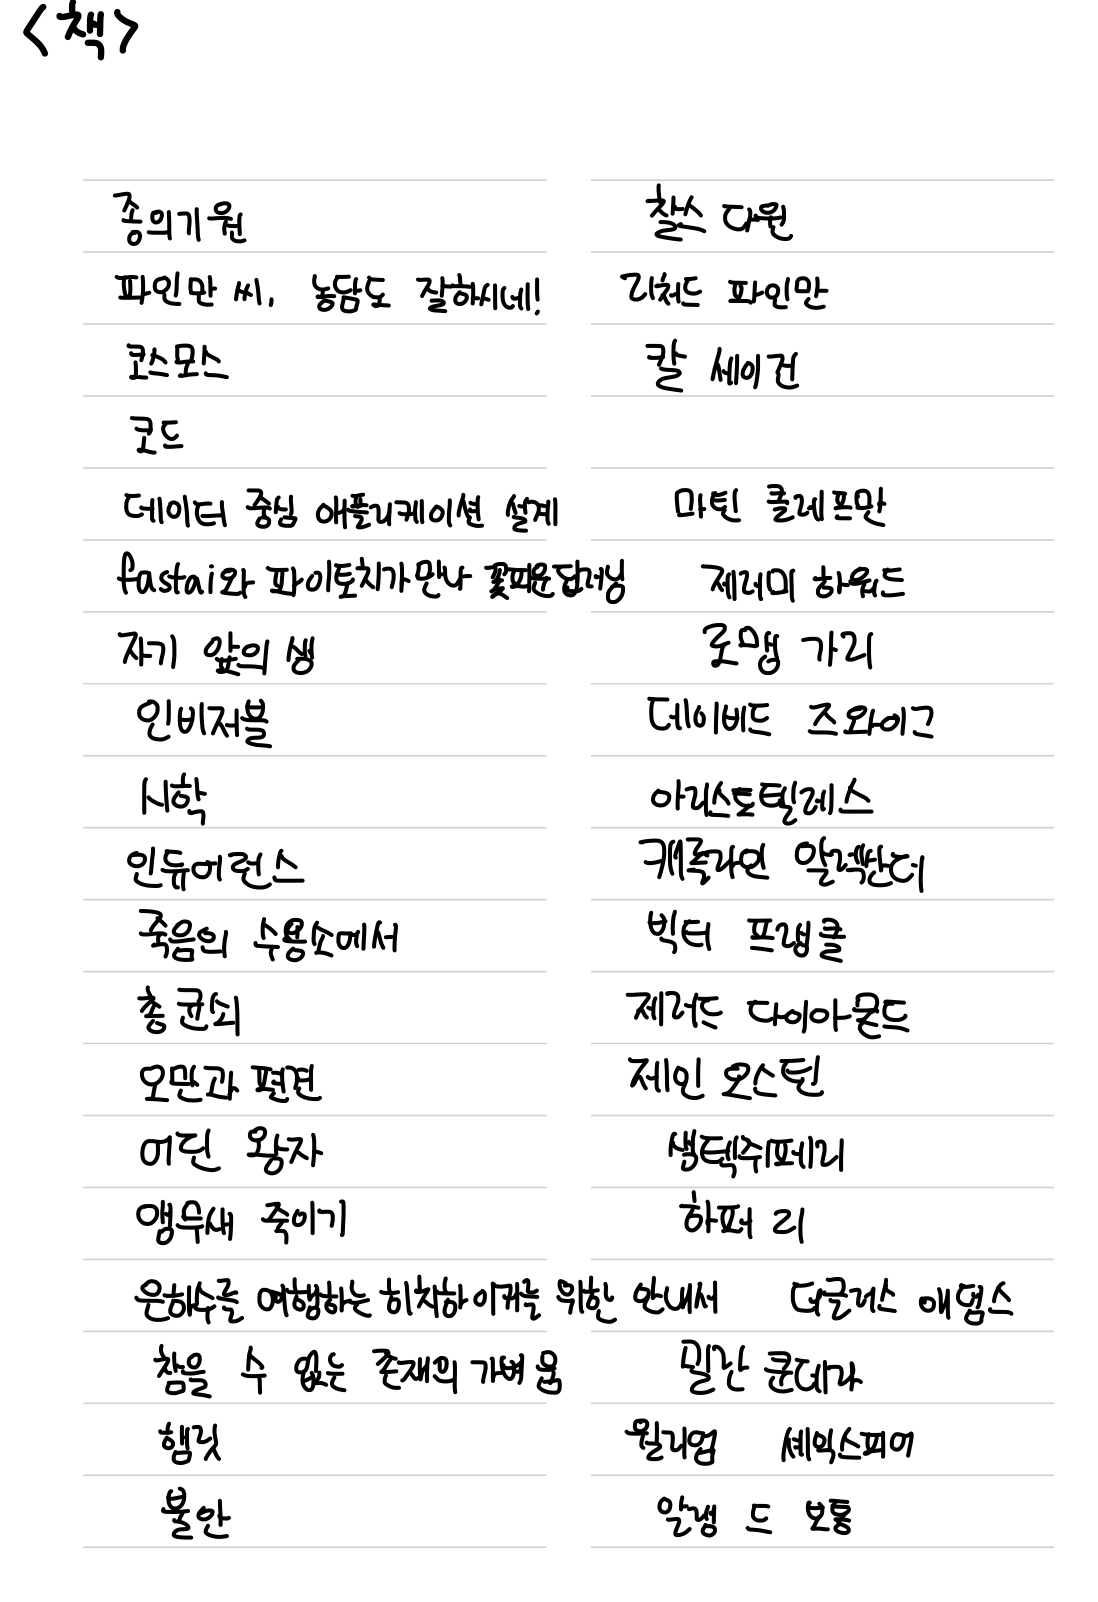 <책>
종의기원 찰스 다윈
파인만 씨, 농담도 잘하시네! 리처드 파인만
코스모스 칼 세이건
코드
데이터 중심 애플리케이션 설계 마틴 클레프만
fastai와 파이토치가 만나 꽃피운 딥러닝 제러미 하워드
자기 앞의 생 로맹 가리
인비저블 데이비드 즈와이그
시학 아리스토텔레스
인듀어런스 캐롤라인 알렉산더
죽음의 수용소에서 빅터 프랭클
총균쇠 제러드 다이아몬드
오만과 편견 제인 오스틴
어린 왕자 생텍쥐페리
앵무새 죽이기 하퍼 리
은하수를 여행하는 히치하이커를 위한 안내서 더글러스 애덤스
참을 수 없는 존재의 가벼움 밀란 쿤데라
햄릿 윌리엄 셰익스피어
불안 알랭 드 보통